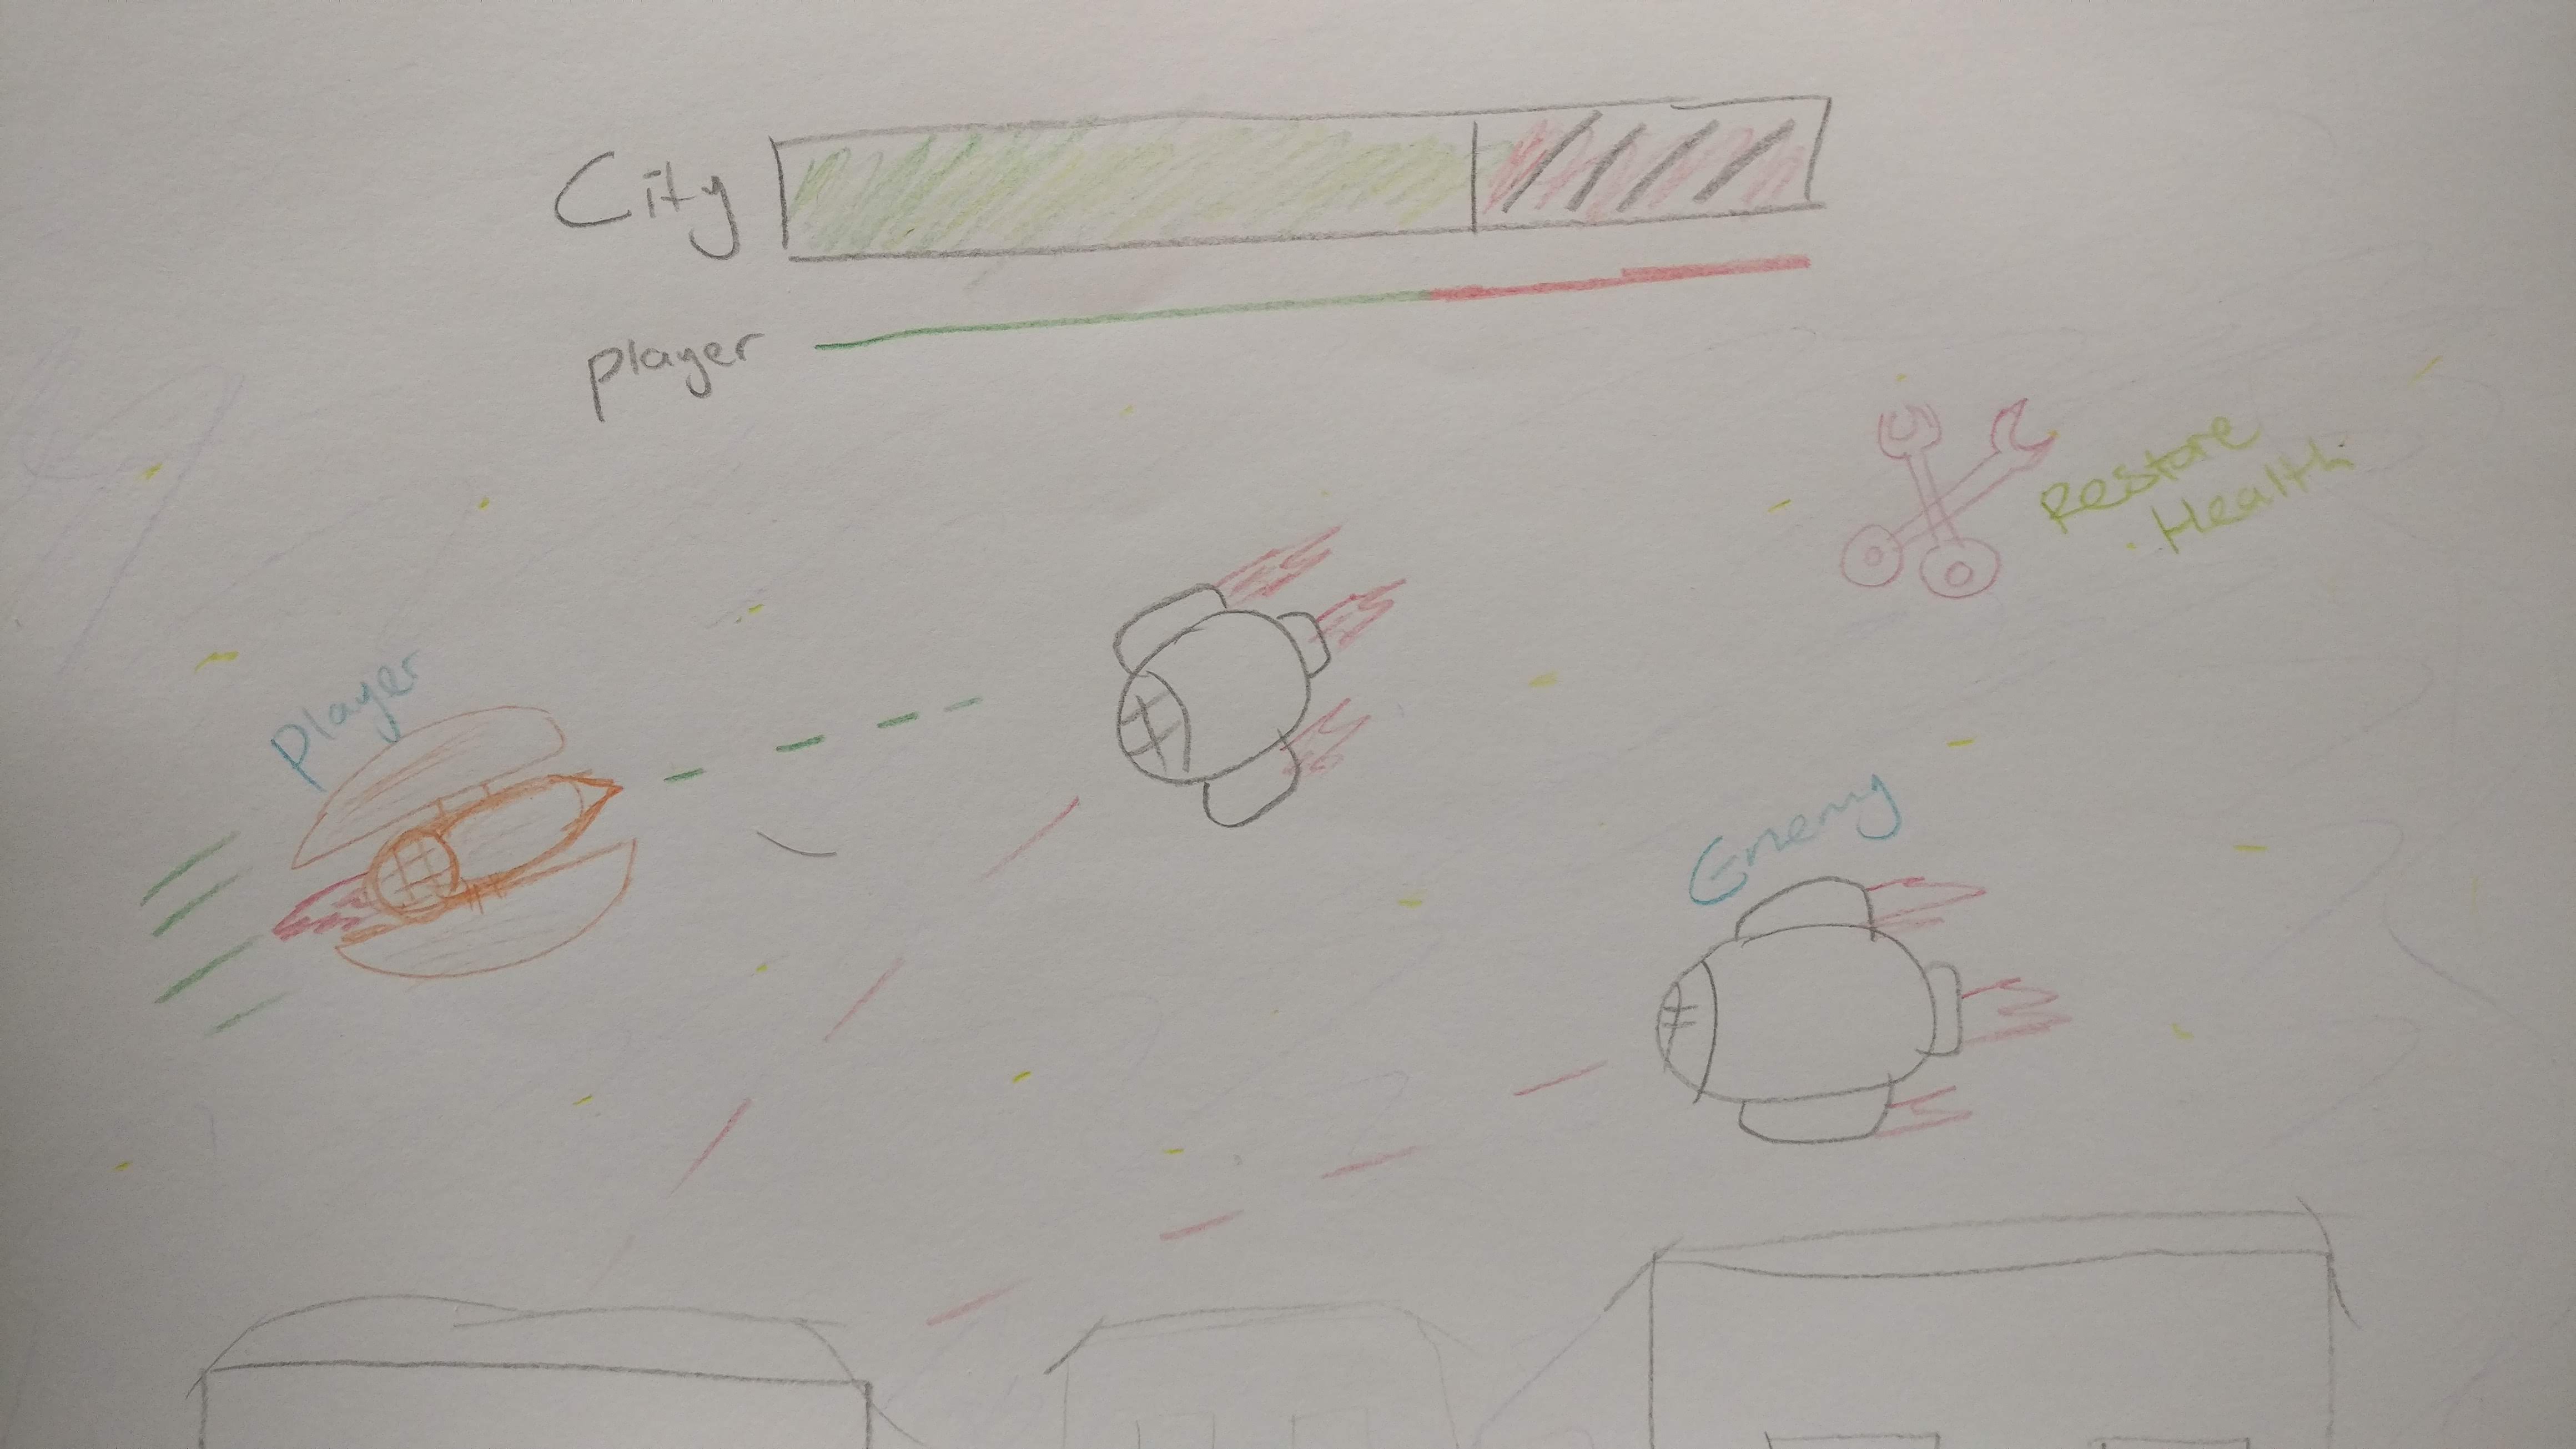 City
player
Restore
Health
Player
Enemy